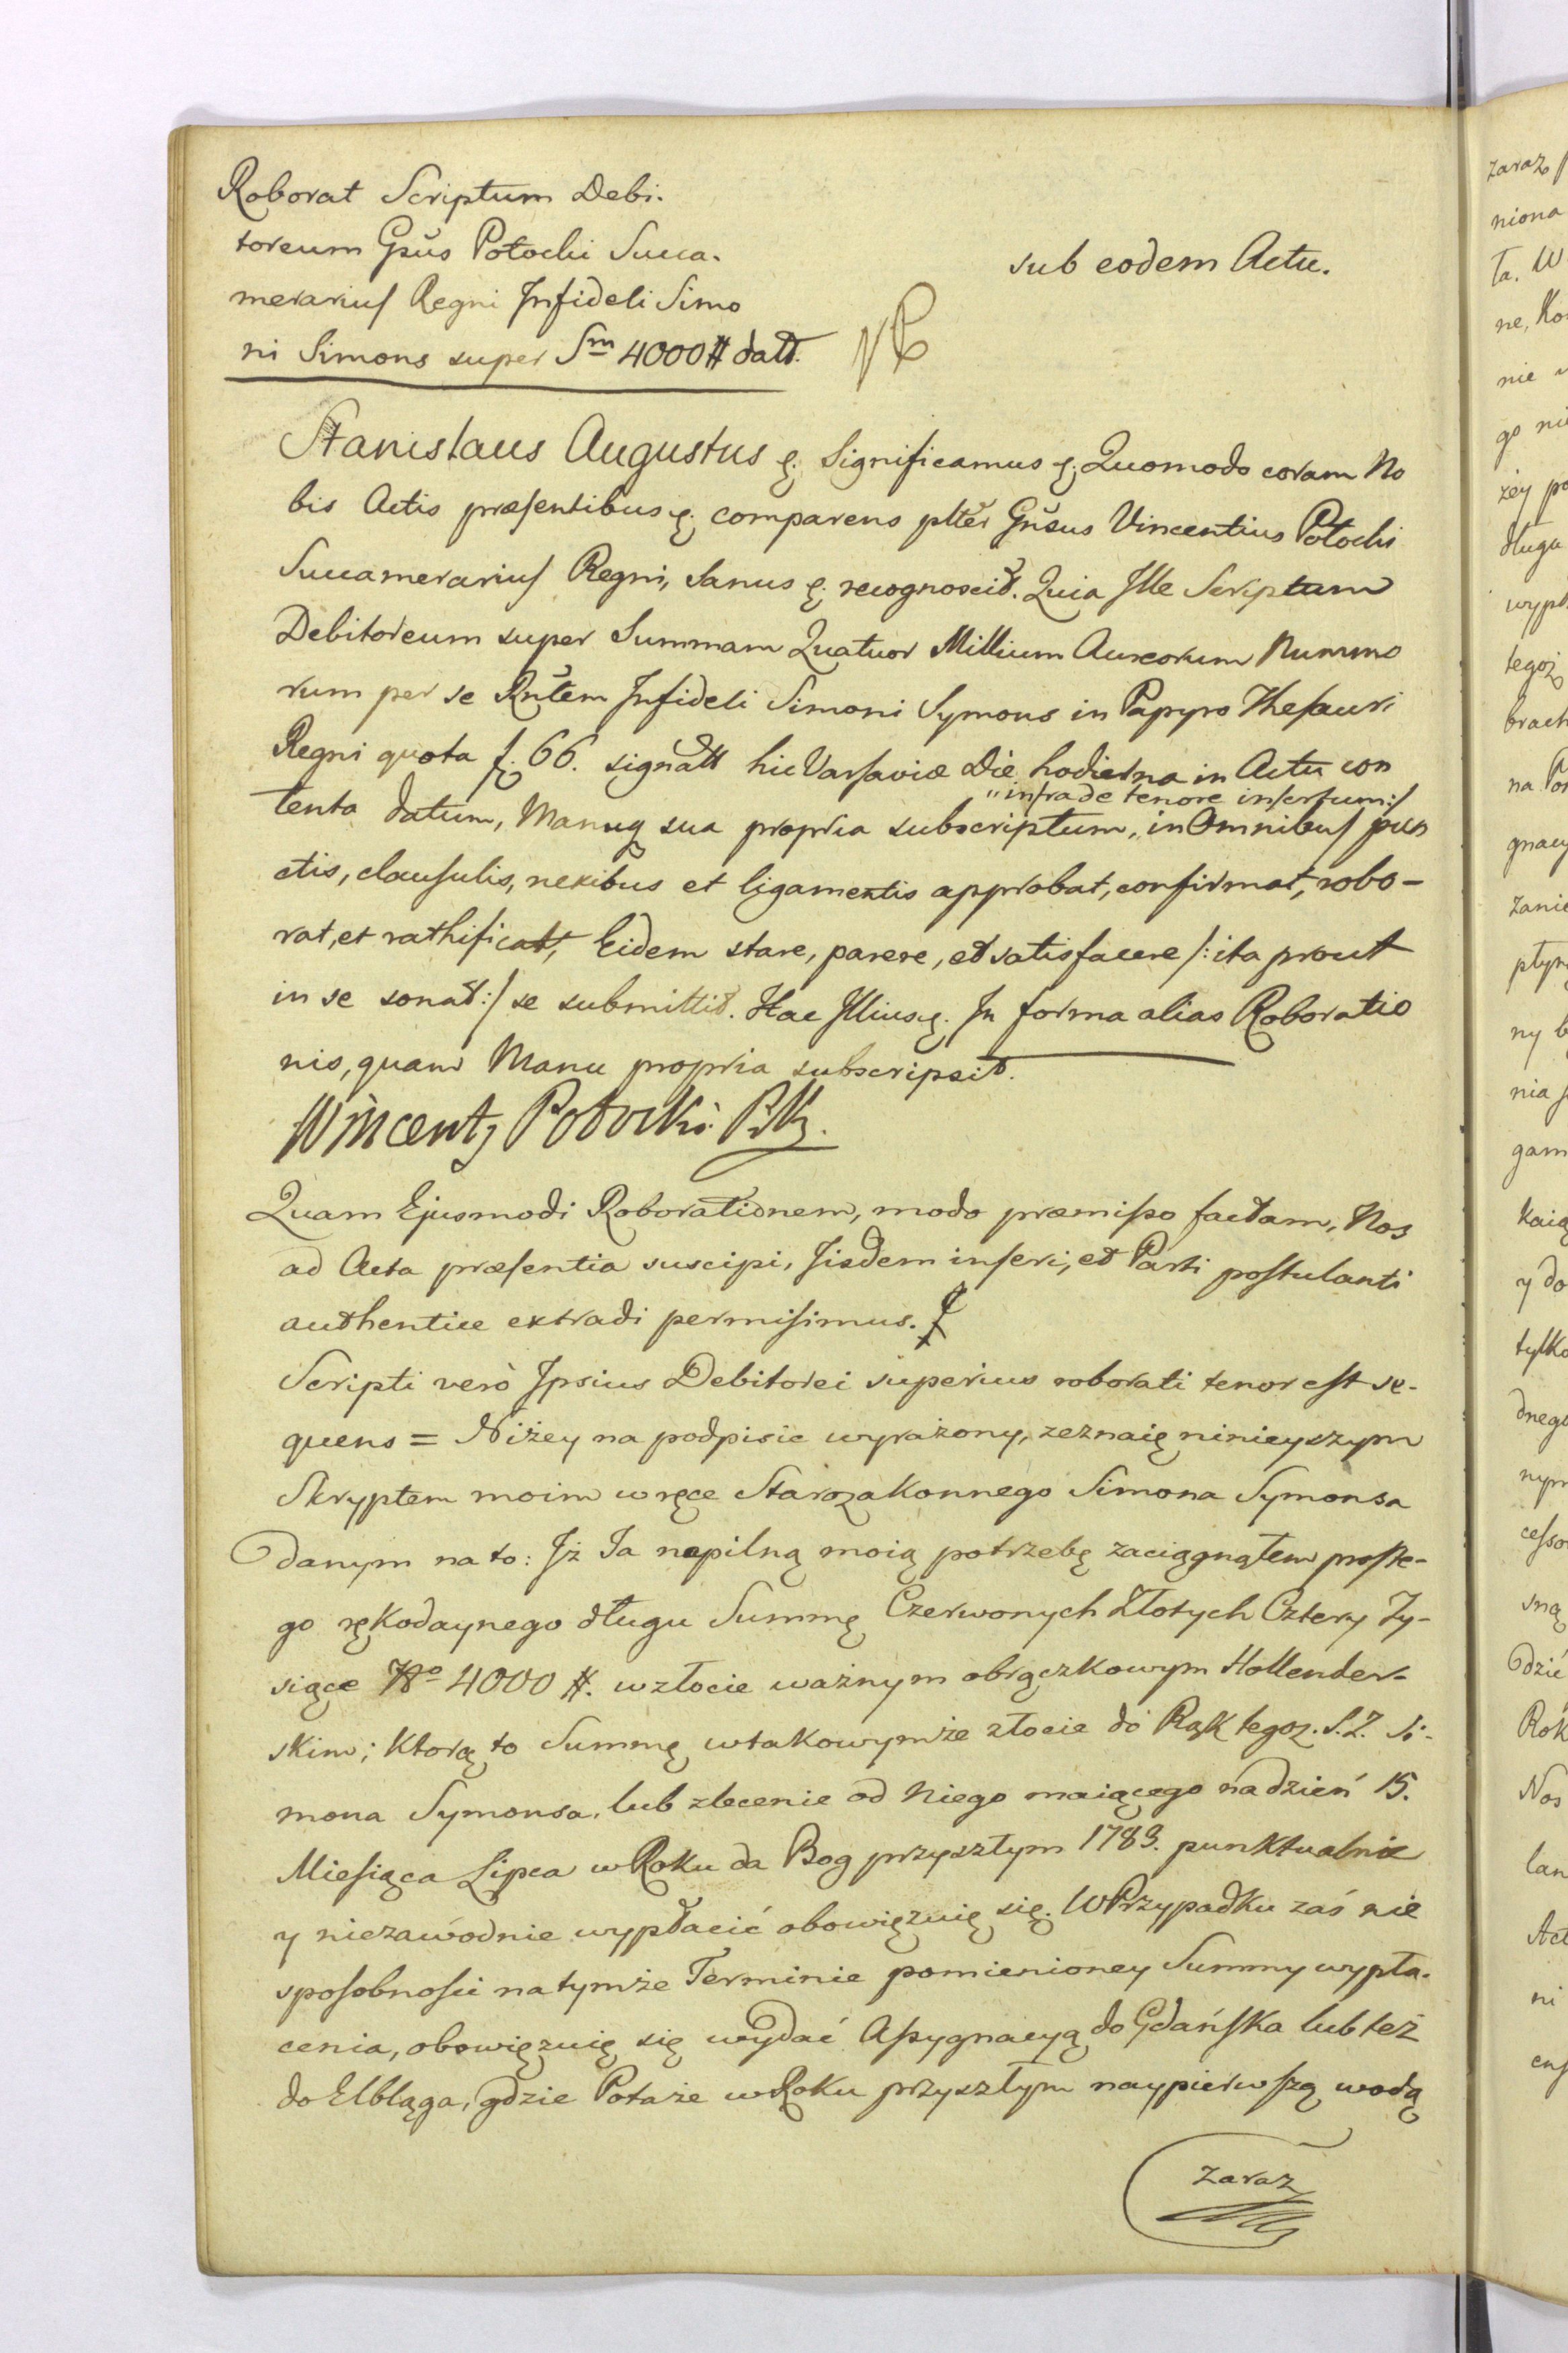 Roborat Scriptum Debi-
toreum Gsūs Potocki Succa-
merarius Regni Infideli Simo
ni Simons super Sm 4000 # datt.
sub eodem Actu.
Stanislaus Augustus &. Significamus &. Quomodo coram No
bis Actis præsentibus &. comparens pltēr Gnēsus Vincentius Potocki
Succamerarius Regni, Sanus &. recognoscit. Quia Ille Scriptum
Debitoreum super Summam Quatuor Millium Aureorum Nummo
rum per se Rntem Infideli Simoni Symons in Papyro Thesauri
Regni quota f. 66. signatt hic Varsaviæ Die hodierna in Actu con
tento datum, Manuq sua propria subscriptum, in Omnibus pun
" infra de tenore insertum:/
ctis, clausulis, nexibus et ligamentis approbat, confirmat, robo-
rat, et rathificatt, Eidem stare, parere, et satisfacere /: ita prout
in se sonat :/ se submittit. Hac Illius &. In forma alias Roboratio
nis, quam Manu propria subscripsit.
Wincenty Potocki PK.
Quam Ejusmodi Roborationem, modo præmisso factam, Nos
ad Acta præsentia suscipi, Iisdem inseri, et Parti postulanti
authentice extradi permisimus.
Scripti verò Ipsius Debitorei superius roborati tenor est se-
quens = Niżey na podpisie wyrażony, zeznaię ninieyszym
Skryptem moim w ręce Starozakonnego Simona Symonsa
danym na to: Iż Ja na pilną moią potrzebę zaciągnąłem proste-
go rękodaynego długu Summę Czerwonych Złotych Cztery Ty-
siące No 4000 #. w złocie ważnym obrączkowym Hollender-
skim; Ktorą to Summę w takowymże złocie do Rąk tegoż. S. Z. Si-
mona Symonsa, lub zlecenie od Niego maiącego na dzień 15.
Miesiąca Lipca w Roku da Bog przyszłym 1783. punktualnie
y niezawodnie wypłacić obowięzuię się. W Przypadku zaś nie
sposobności na tymże Terminie pomienioney Summy wypła-
cenia, obowięzuię się wydać Assygnacyą do Gdańska lub też
do Elbląga, gdzie Potaże w Roku przyszłym naypierwszą wodą
zaraz
zaraz
niona
ta. W
ne,
nie
go
żey
długu
tegoż
na
ny
nia
y do
tylko
dnego
Rok
Nos
ni